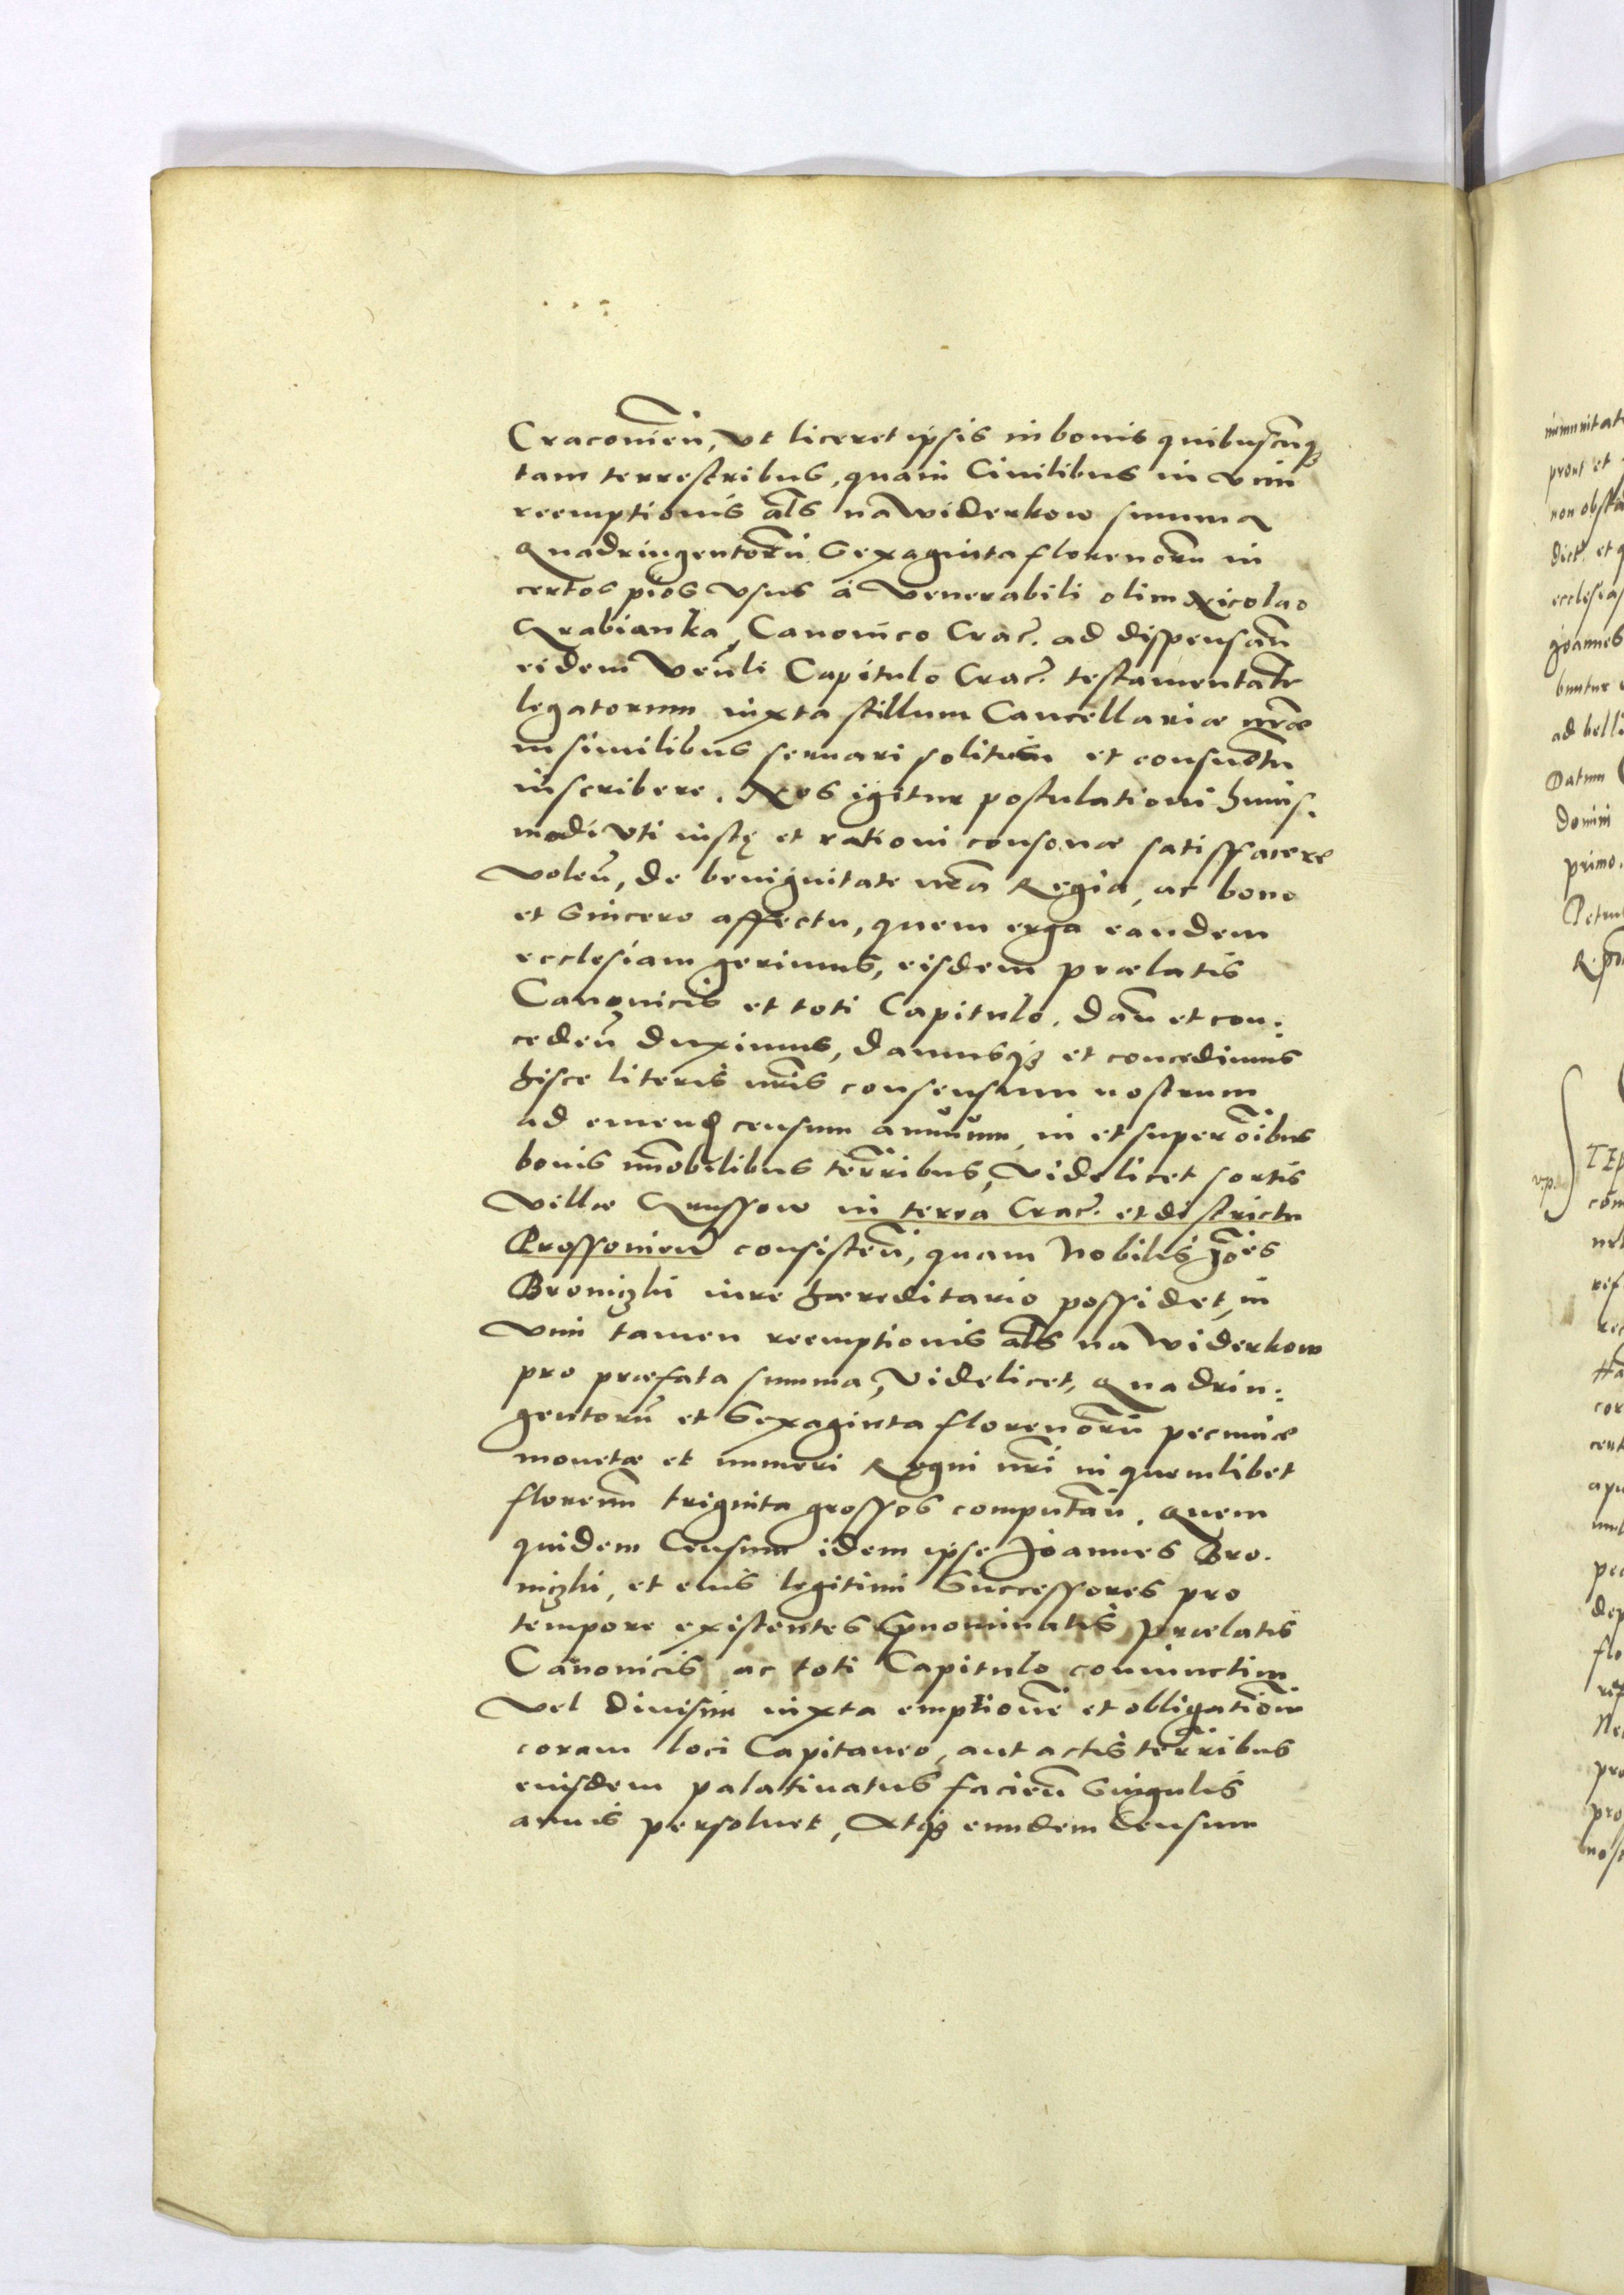 Craconien̄, vt liceret ipsis in bonis quibuscūqȝ
tam terrestribus, quam Ciuilibus in vim
reemptionis als na widerkow summa
Quadringentorū Sexaginta florenorū in
certos pios vsus à Venerabili olim Nicolao
Grabianka, Canonico Crac̄. ad dispensan̄
eidem Ven̄li Capitulo Crac̄. testamentatr̄
legatorum iuxta stillum Cancellariæ nr̄æ
in similibus seruari solitum et consuetū
inscribere. Nos igitur postulationi huius.
modi vti iustę et rationi consonæ satisfacere
volen̄, de benignitate nr̄a Regia, ac bono
et Sincero affectu, quem erga eandem
ecclesiam gerimus, eisdem prælatis
Canonicis et toti Capitulo. dan̄ et con:
ceden̄ duximus, damusqȝ et concedimus
hisce literis nr̄is consensum nostrum
ad emend censum annuum, in et super oībus
bonis im̄obilibus terr̄ribus, videlicet sortis
villæ Grussow in terra Crac̄. et districtu
Prossouien̄ consisten̄, quam Nobilis Joēs
Broniczki iure hæreditario possidet, in
vim tamen reemptionis als na widerkow
pro præfata summa, videlicet, Quadrin:
gentorū et Sexaginta florenorū pecuniæ
monetæ et numeri Regni nr̄i in quemlibet
florenū triginta grossos computan̄. Quem
quidem Censum idem ipse Joannes Bro.
niczki, et eius legitimi Successores pro
tempore existentes prnominatis prælatis
Canonicis ac toti Capitulo coniunctim
vel diuisim iuxta emptionē et obligationē
coram loci Capitaneo, aut actis terr̄ribus
eiusdem palatinatus facien̄ Singulis
annis persoluet, Atqȝ eundem Censum